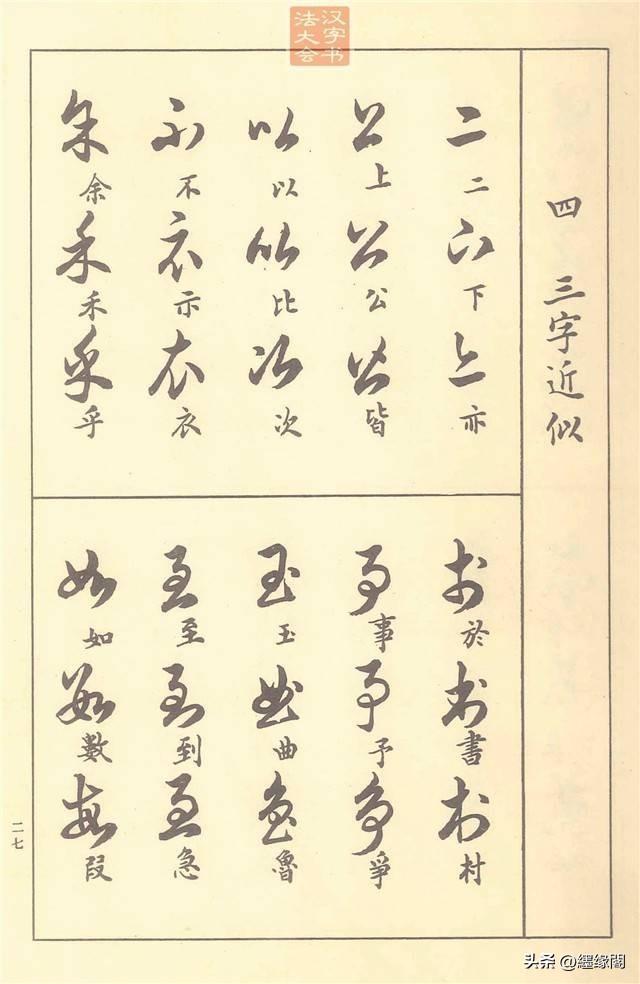 汉字书法大会
四 三字近似
二 下 亦
上 公 皆
以 比 次
不 示 衣
余 禾 乎
於 書 村
事 予 爭
玉 曲 魯
至 到 急
如 數 段
二七
头条 @繼缘閣